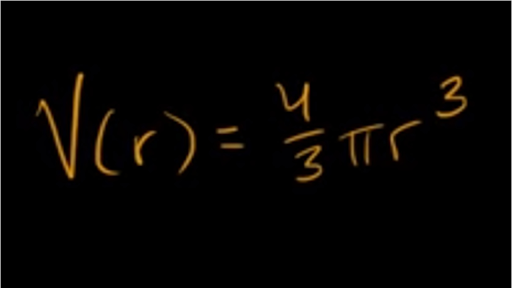 V(r) = 4/3 πr³